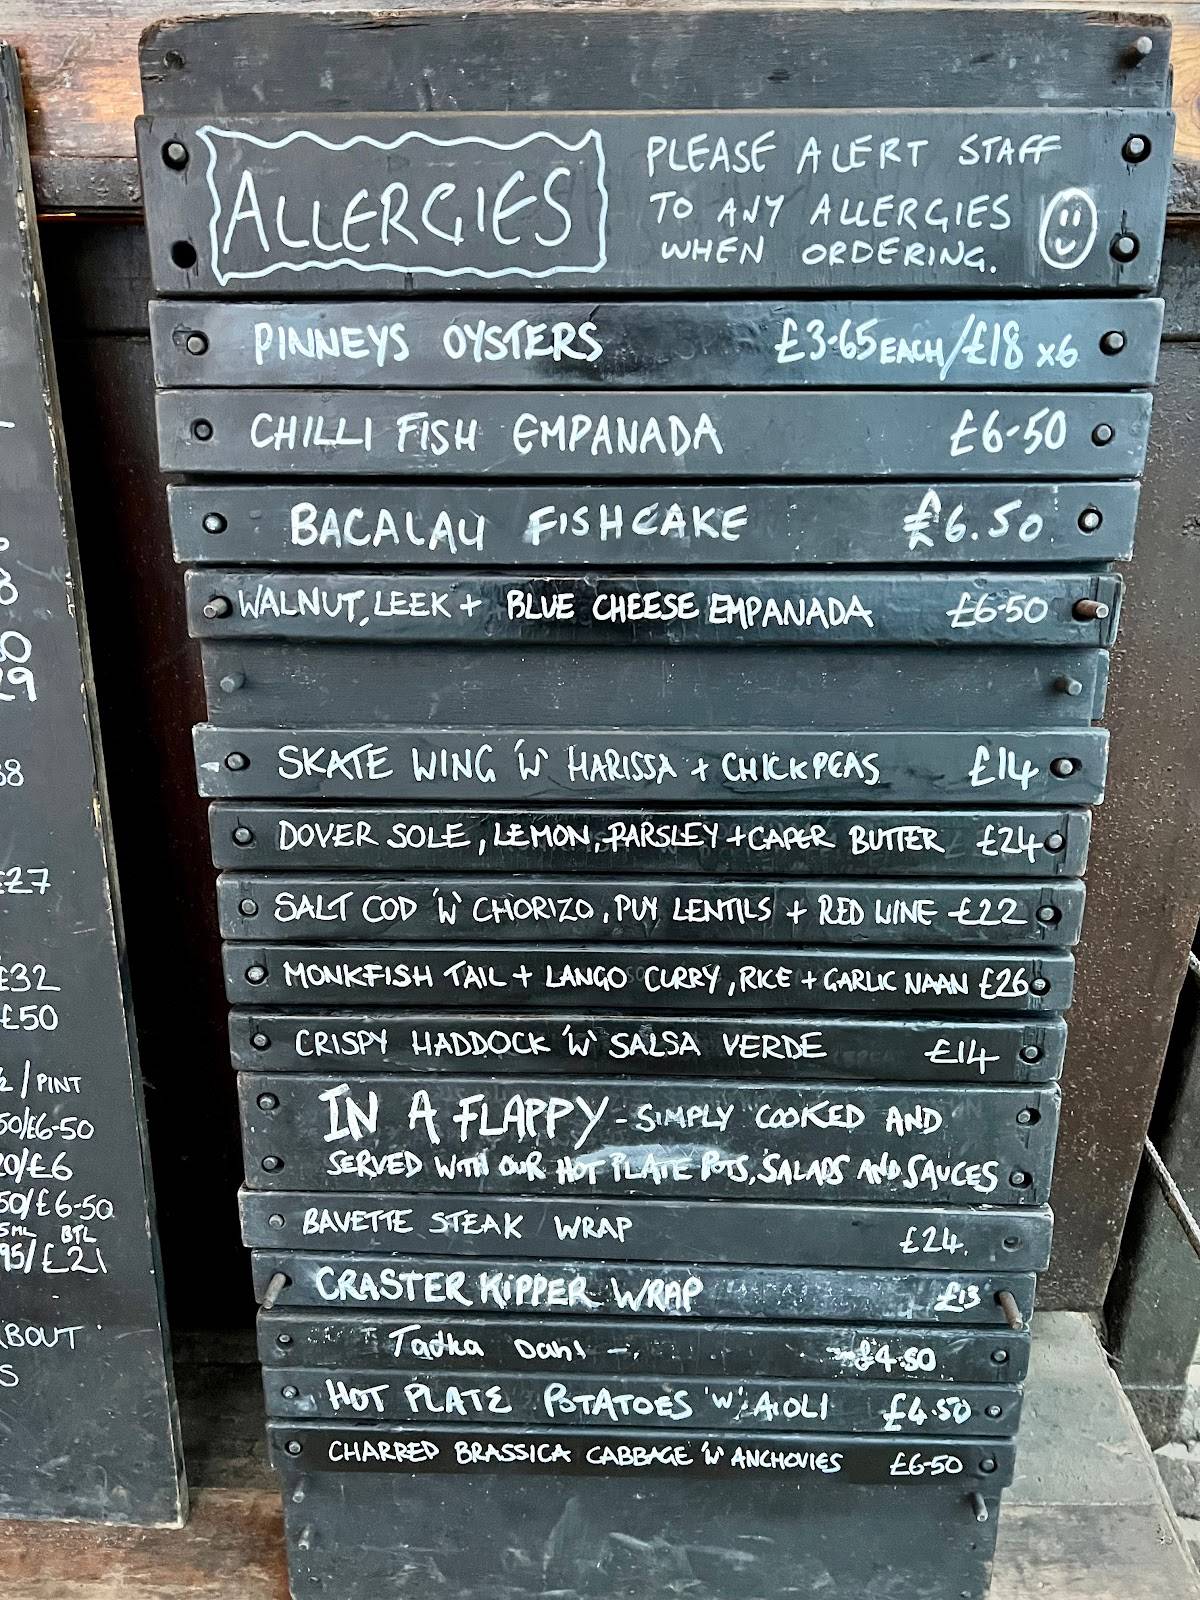 ALLERGIES
PLEASE ALERT STAFF
TO ANY ALLERGIES
WHEN ORDERING.
PINNEYS OYSTERS £3-65 EACH/£18 x6
CHILLI FISH EMPANADA £6-50
BACALAU FISHCAKE £6.50
WALNUT, LEEK + BLUE CHEESE EMPANADA £6-50
SKATE WING 'W' HARISSA + CHICKPEAS £14
DOVER SOLE, LEMON, PARSLEY + CAPER BUTTER £24
SALT COD 'W' CHORIZO, PUY LENTILS + RED WINE £22
MONKFISH TAIL + LANGO CURRY, RICE + GARLIC NAAN £26
CRISPY HADDOCK 'W' SALSA VERDE £14
IN A FLAPPY - SIMPLY COOKED AND
SERVED WITH OUR HOT PLATE POTS, SALADS AND SAUCES
BAVETTE STEAK WRAP £24.
CRASTER KIPPER WRAP £13
Tadka Dahl - £4.50
HOT PLATE POTATOES 'W' AIOLI £4.50
CHARRED BRASSICA CABBAGE 'W' ANCHOVIES £6-50
£27
£32
£50
/ PINT
50/£6-50
20/£6
50/£6-50
BTL
95/£21